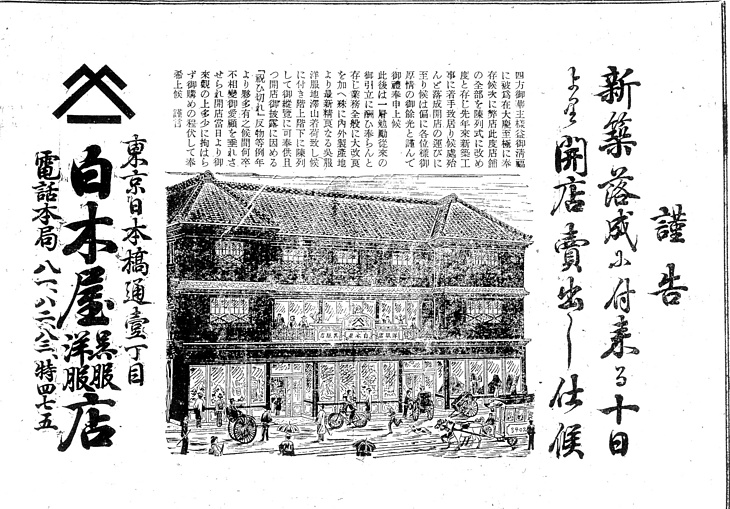 謹告
新築落成に付来る十日
より開店賣出し仕候
四方御華主様益御清福
に被為在大慶至極に奉
存候次に弊店此度店館
の全部を陳列式に改め
度と存じ先年来新築工
事に着手致居り候處殆
んど落成開店の運びに
至り候は偏に各位様御
厚情の御餘光と謹んで
御禮奉申上候
此後は一層勉勵従来の
御引立に酬ひ奉らんと
存じ業務全般に大改良
を加へ殊に内外製産地
より最新精良なる呉服
洋服地澤山着荷致し候
に付き階上階下に陳列
して御縦覧に可奉供且
つ開店御披露に因める
「祝ひ切れ」反物等例年
より夥多有之候間何卒
不相變御愛顧を垂れさ
せられ開店當日より御
来觀の上多少に拘はら
ず御購めの程伏して奉
希上候 謹言
東京日本橋通壹丁目
白木屋呉服洋服店
電話本局八一、八二、八三、特四七五